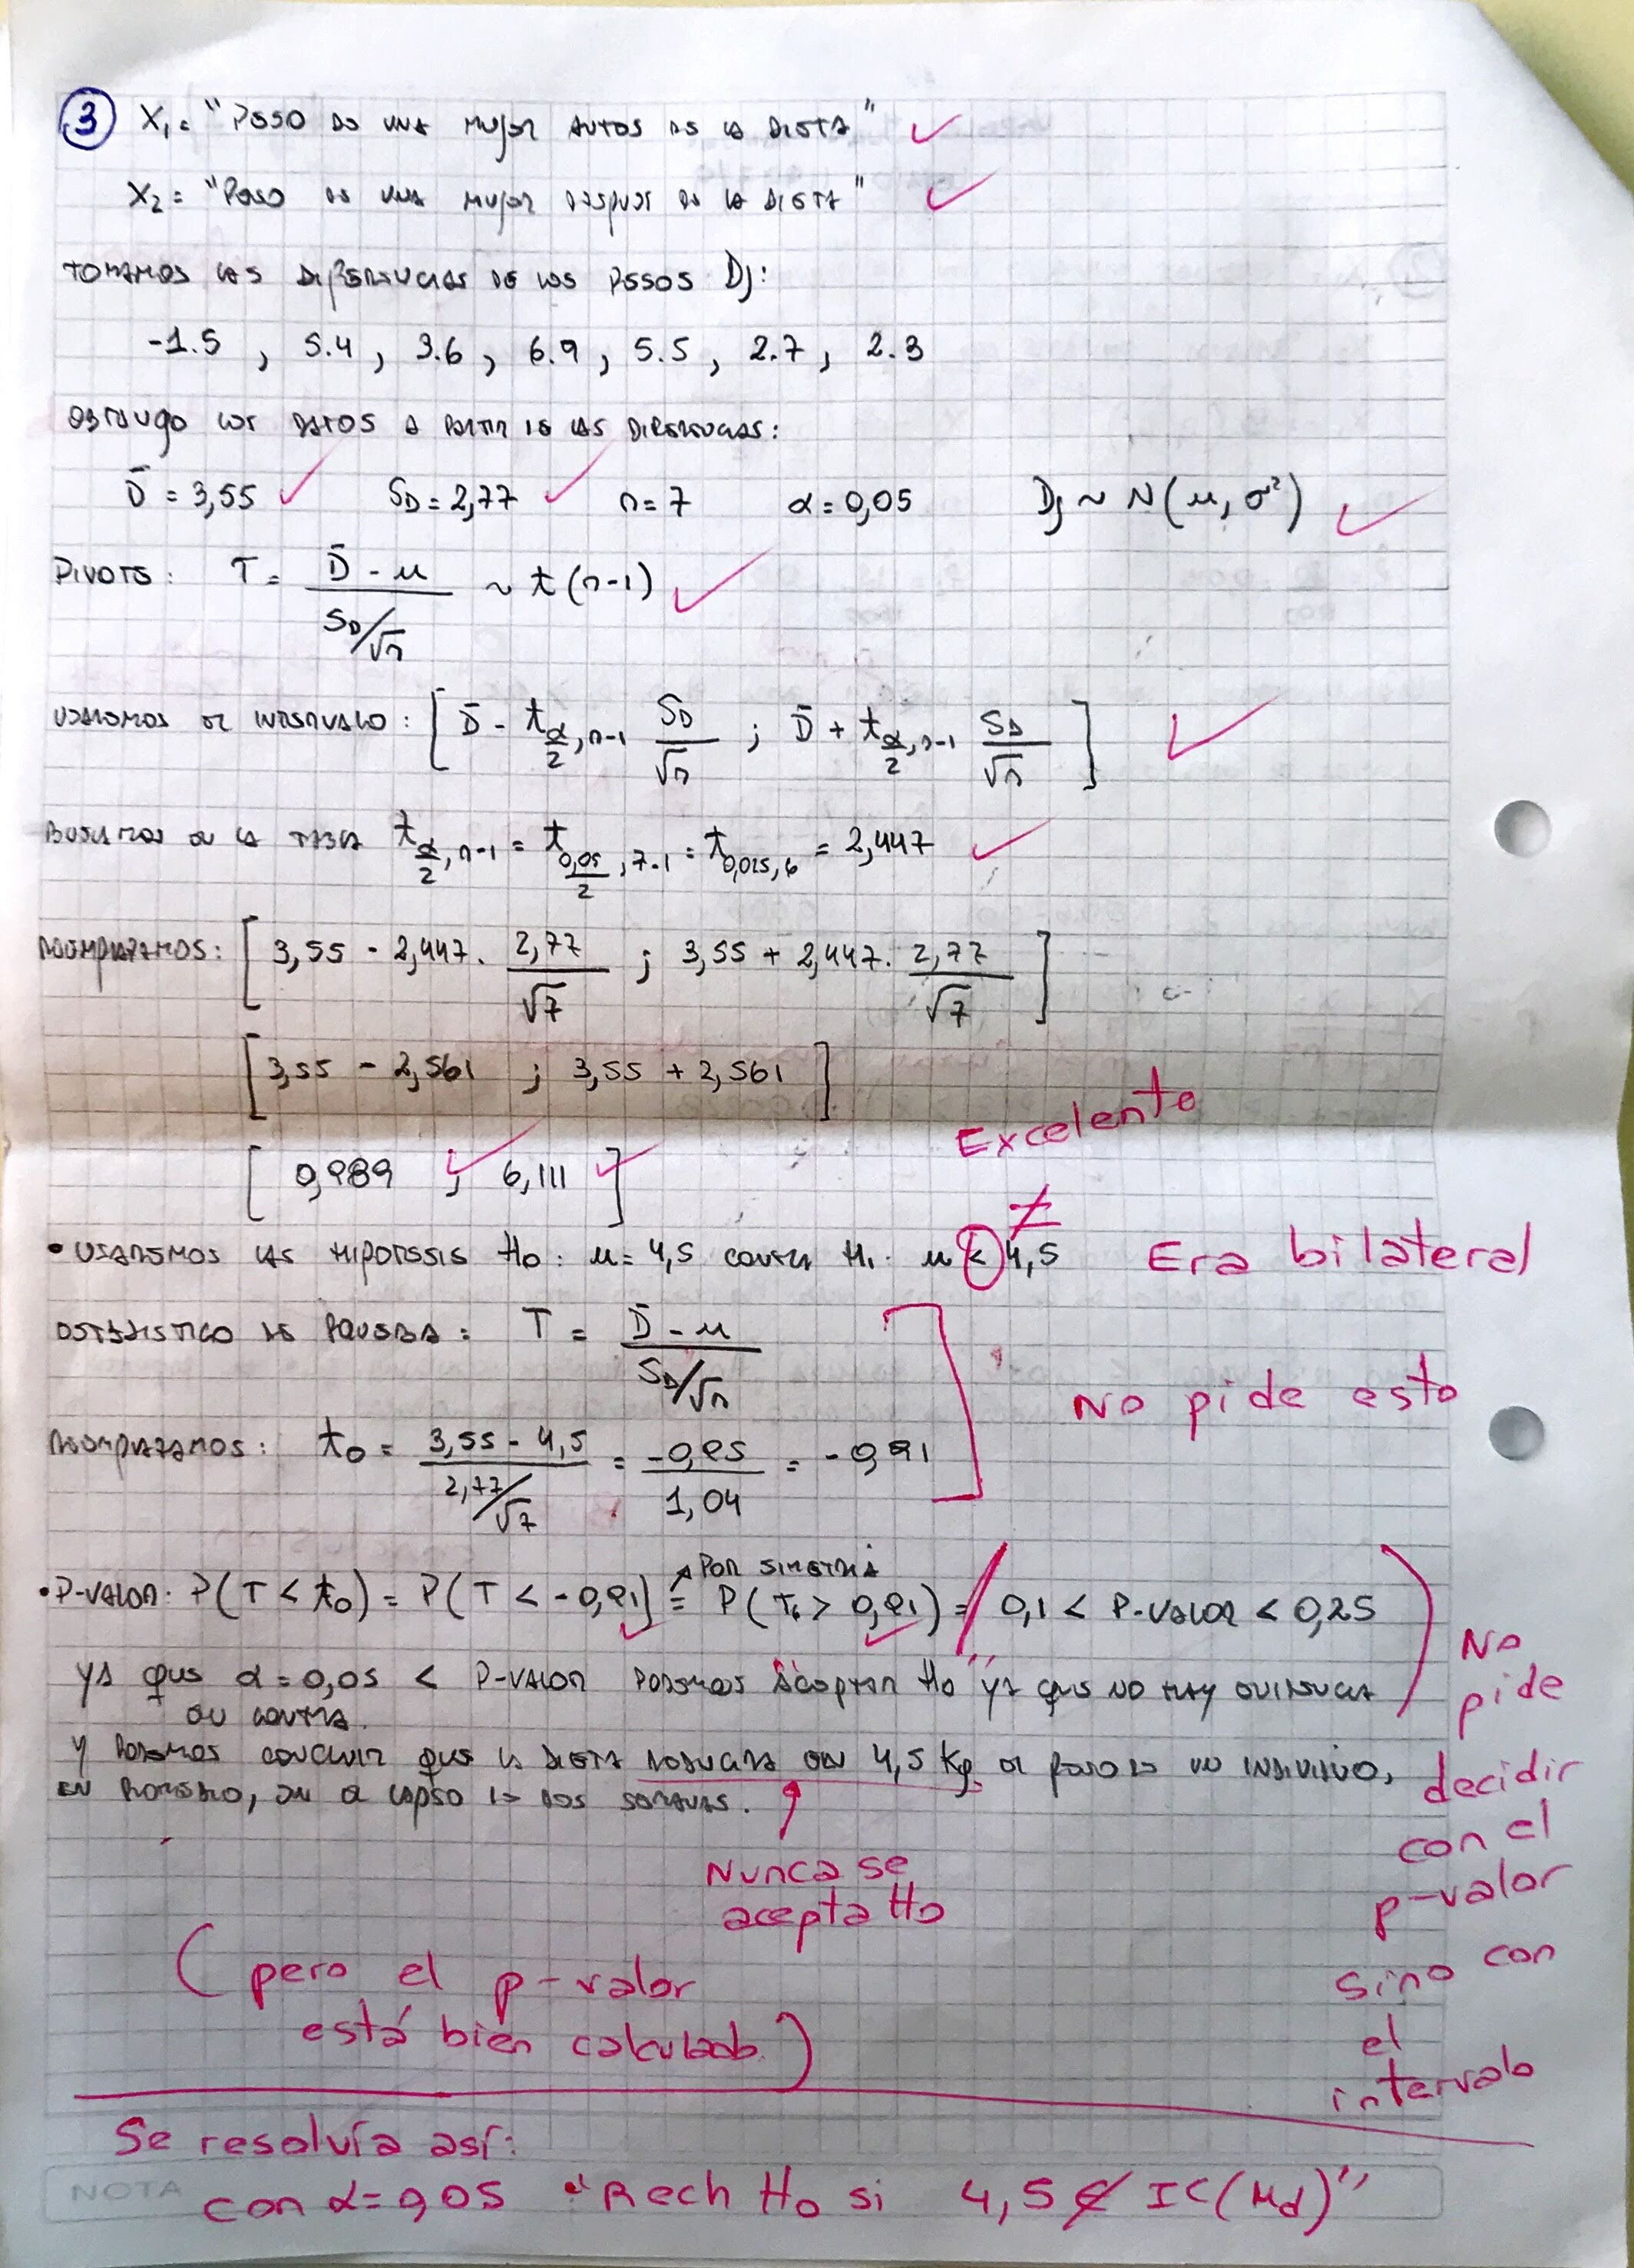 3 X₁ = "Peso de una mujer antes de la dieta"
X₂ = "Peso de una mujer despues de la dieta"
Tomamos las diferencias de los pesos Dj:
-1.5 , 5.4 , 3.6 , 6.9 , 5.5 , 2.7 , 2.3
Obtengo los datos a partir de las diferencias:
D̄ = 3,55 S_D = 2,77 n = 7 α = 0,05 Dj ~ N(μ, σ²)
Pivote: T = (D̄ - μ) / (S_D/√n) ~ t(n-1)
Usaremos el intervalo: [D̄ - t_{α/2, n-1} S_D/√n ; D̄ + t_{α/2, n-1} S_D/√n]
Buscamos en la tabla t_{α/2, n-1} = t_{0,05/2, 7-1} = t_{0,025, 6} = 2,447
Reemplazamos: [3,55 - 2,447 . 2,77/√7 ; 3,55 + 2,447 . 2,77/√7]
[3,55 - 2,561 ; 3,55 + 2,561]
Excelente
[0,989 ; 6,111]
≠
• Usaremos las hipotesis H₀: μ = 4,5 contra H₁: μ < 4,5 Era bilateral
Estadistico de prueba: T = (D̄ - μ) / (S_D/√n)
No pide esto
Reemplazamos: t₀ = (3,55 - 4,5) / (2,77/√7) = -0,95 / 1,04 = -0,91
por simetria
• P-valor: P(T < t₀) = P(T < -0,91) = P(T > 0,91) = 0,1 < P-valor < 0,25
ya que α = 0,05 < P-valor podemos "aceptar H₀" ya que no hay evidencia
en contra.
y podemos concluir que la dieta reducira en 4,5 Kg. el peso de un individuo,
en promedio, en el lapso de dos semanas.
No
pide
decidir
con el
p-valor
sino con
el
intervalo
Nunca se
acepta H₀
(pero el p-valor
está bien calculado)
Se resolvía así:
con α = 0,05 "Rech H₀ si 4,5 ∉ IC(μd)"
NOTA